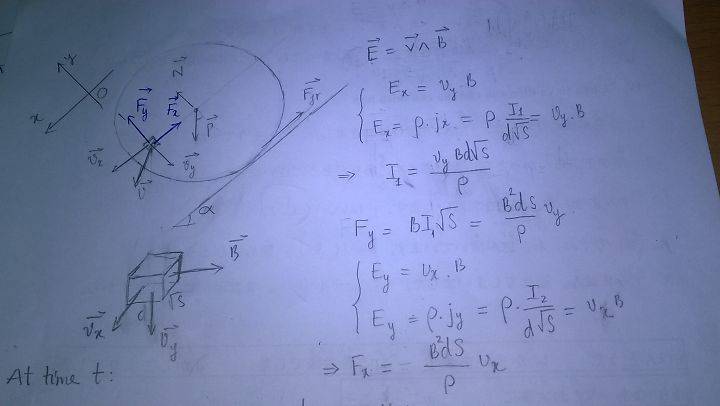 y
O
x
N⃗
F⃗y
F⃗x
F⃗fr
P⃗
v⃗x
v⃗y
v⃗
α
B⃗
√S
d
v⃗x
v⃗y
At time t:
E⃗ = v⃗ ∧ B⃗
Ex = vy · B
Ex = ρ · jx = ρ I1/(d√S) = vy · B
⇒ I1 = vy B d√S / ρ
Fy = B I1 √S = B²dS/ρ vy
Ey = vx · B
Ey = ρ · jy = ρ · I2/(d√S) = vx B
⇒ Fx = B²dS/ρ vx